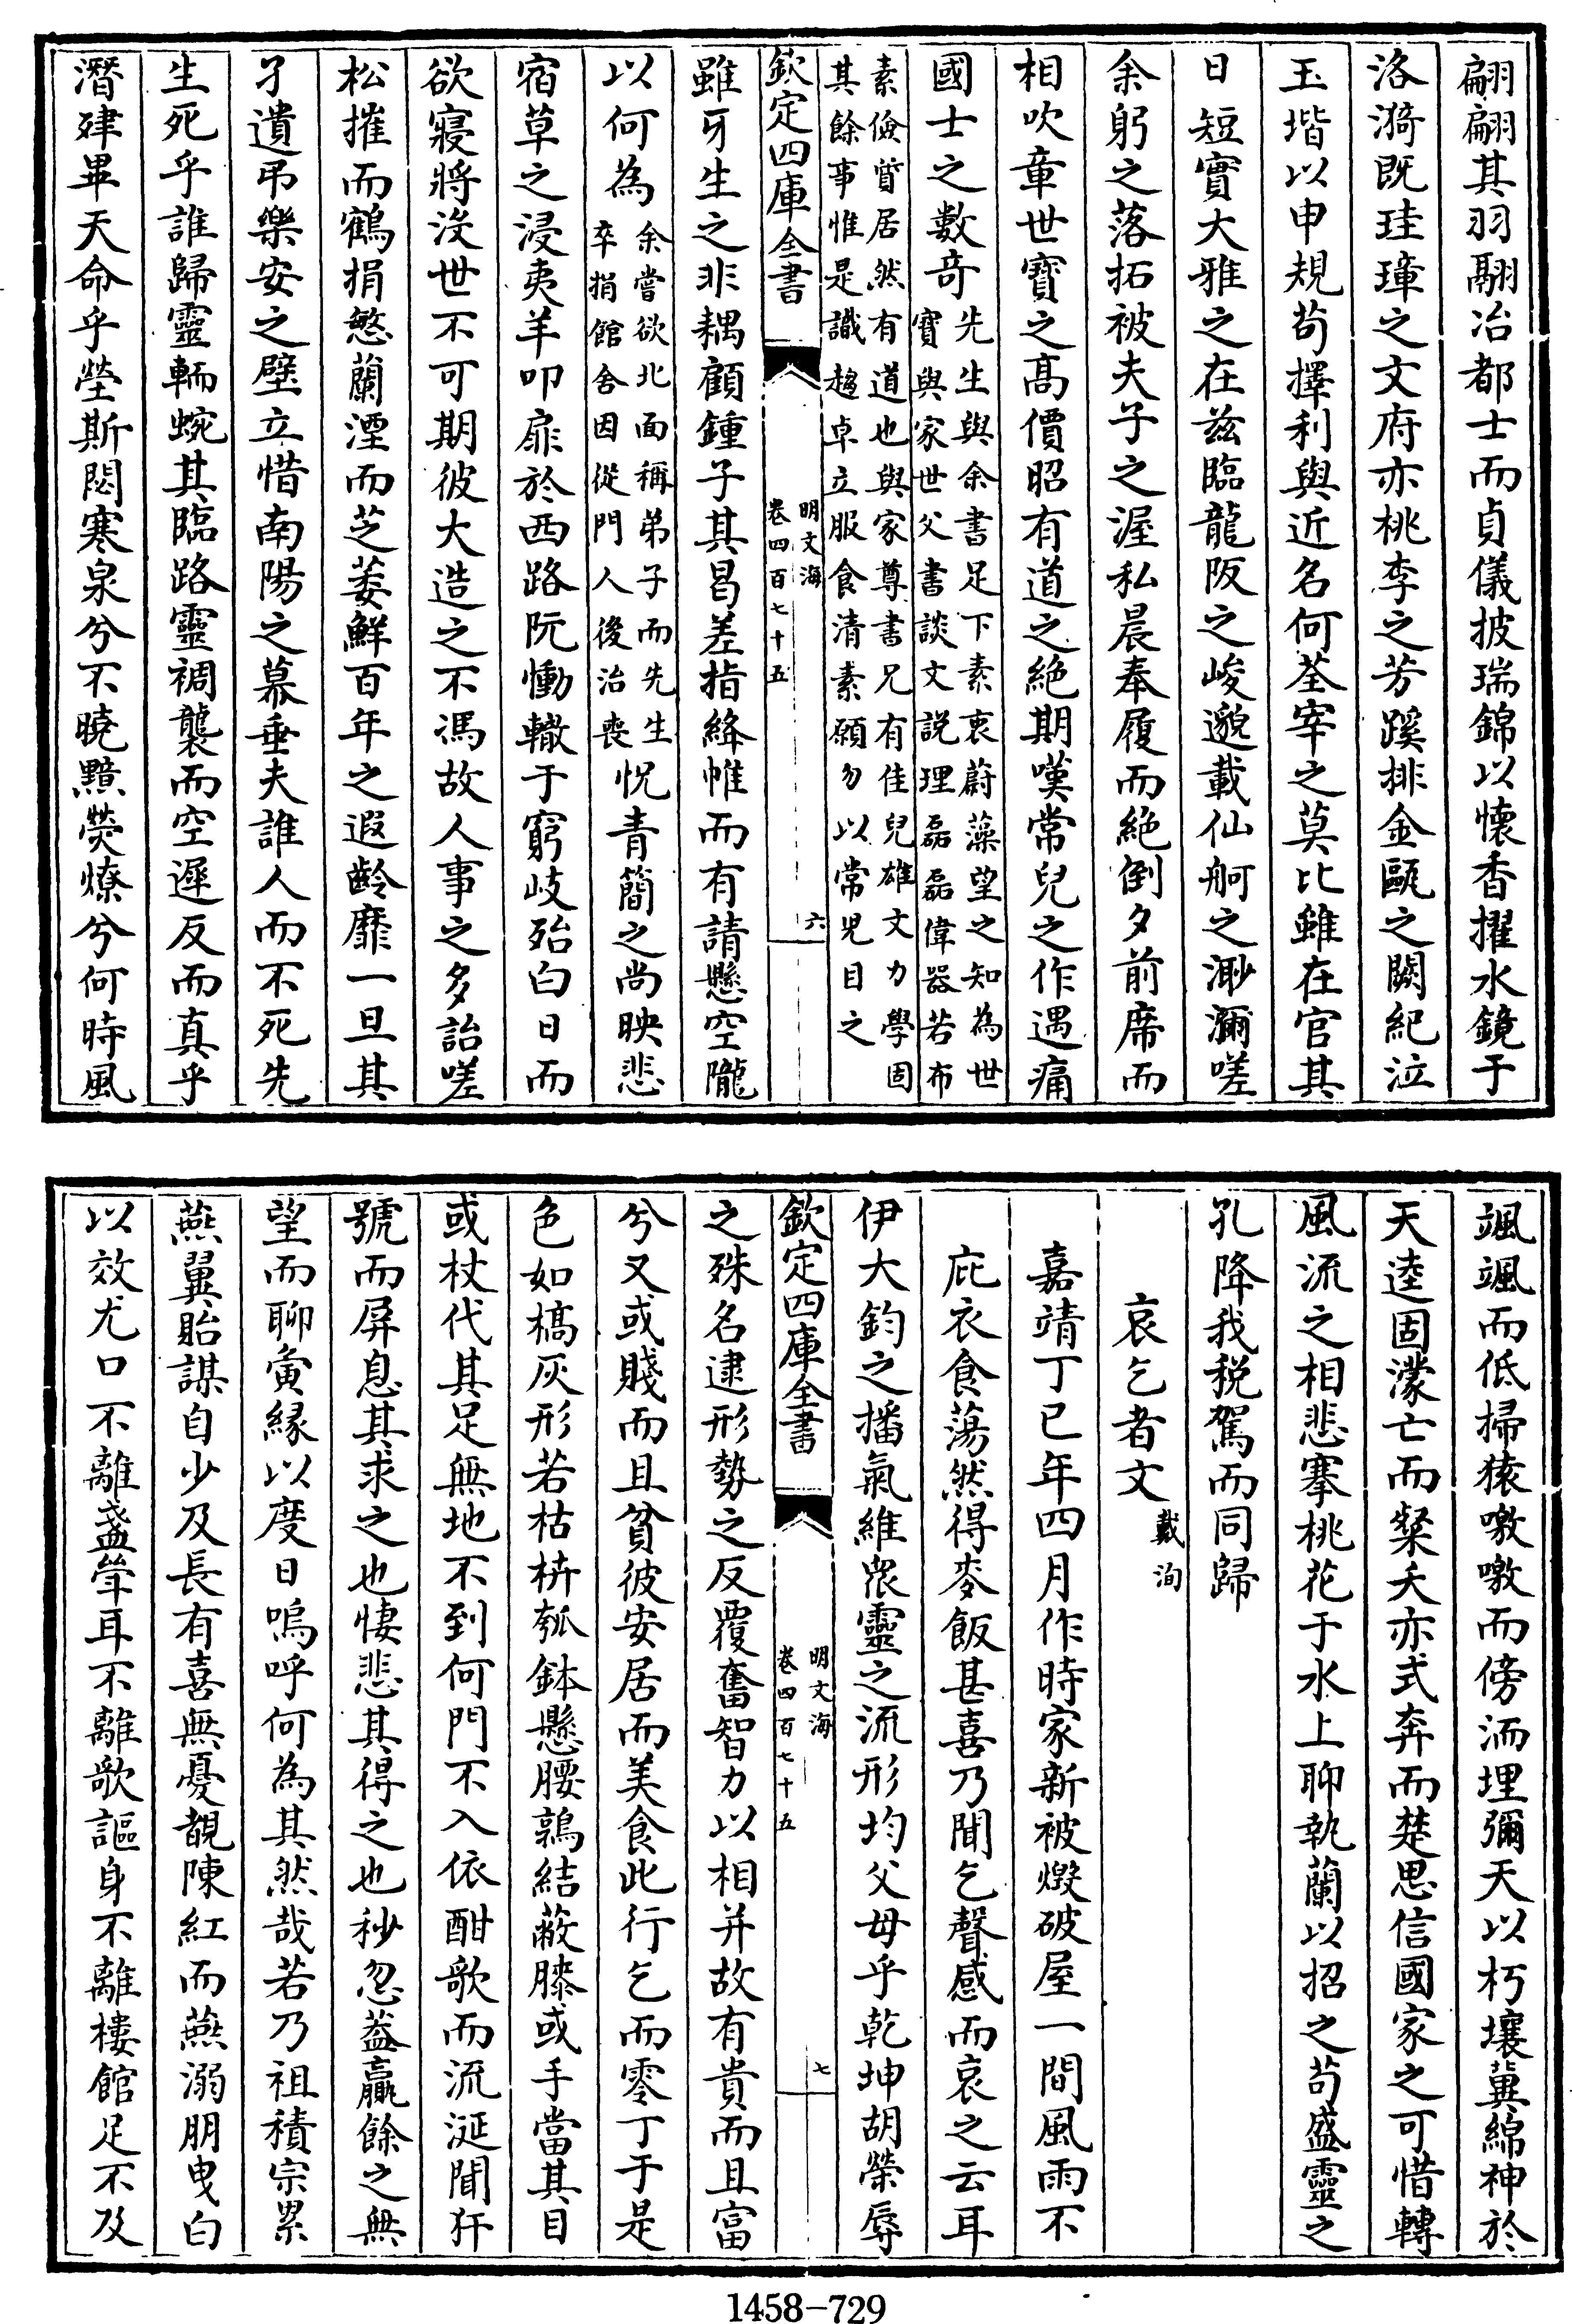 翩翩其羽翮冶都士而貞儀披瑞錦以懷香擢水鏡于
洛漪既珪璋之文府亦桃李之芳蹊排金甌之闕紀泣
玉堦以申規苟擇利與近名何荃宰之莫比雖在官其
日短實大雅之在兹臨龍阪之峻邈載仙舸之渺瀰嗟
余躬之落拓被夫子之渥私晨奉履而絶倒夕前席而
相吹章世寳之髙價昭有道之絶期嘆常兒之作遇痛
國士之數奇先生與余書足下素衷蔚藻望之知為世
寳與家世父書談文説理磊磊偉器若布
素儉質居然有道也與家尊書兄有佳兒雄文力學固
其餘事惟是識趨卓立服食清素願勿以常兒目之
欽定四庫全書
明文海
卷四百七十五
六
雖牙生之非耦顧鍾子其曷差指絳帷而有請懸空隴
以何為余嘗欲北面稱弟子而先生
卒捐館舍因從門人後治喪怳青簡之尚映悲
宿草之浸夷羊叩扉於西路阮慟轍于窮岐殆白日而
欲寢將没世不可期彼大造之不馮故人事之多詒嗟
松摧而鶴捐慜蘭湮而芝萎鮮百年之遐齡靡一旦其
孑遺弔樂安之壁立惜南陽之幕垂夫誰人而不死先
生死乎誰歸靈輀蜿其臨路靈裯襲而空遲反而真乎
潛肂畢天命乎塋斯悶寒泉兮不曉黯熒燎兮何時風
颯颯而低掃猿噭噭而傍洏埋彌天以朽壤冀綿神於
天逵固濛亡而粲夭亦式奔而楚思信國家之可惜轉
風流之相悲搴桃花于水上聊執蘭以招之苟盛靈之
孔降我税駕而同歸
哀乞者文戴洵
嘉靖丁巳年四月作時家新被燬破屋一間風雨不
庇衣食蕩然得麥飯甚喜乃聞乞聲感而哀之云耳
伊大鈞之播氣維衆靈之流形均父母乎乾坤胡榮辱
欽定四庫全書
明文海
卷四百七十五
七
之殊名逮形勢之反覆奮智力以相并故有貴而且富
兮又或賤而且貧彼安居而美食此行乞而零丁于是
色如槁灰形若枯枿瓠鉢懸腰鶉結蔽膝或手當其目
或杖代其足無地不到何門不入依酣歌而流涎聞犴
號而屏息其求之也悽悲其得之也秒忽益羸餘之無
望而聊夤縁以度日嗚呼何為其然哉若乃祖積宗累
燕翼貽謀自少及長有喜無憂覩陳紅而燕溺朋曳白
以效尤口不離盞斝耳不離歌謳身不離樓館足不及
1458-729